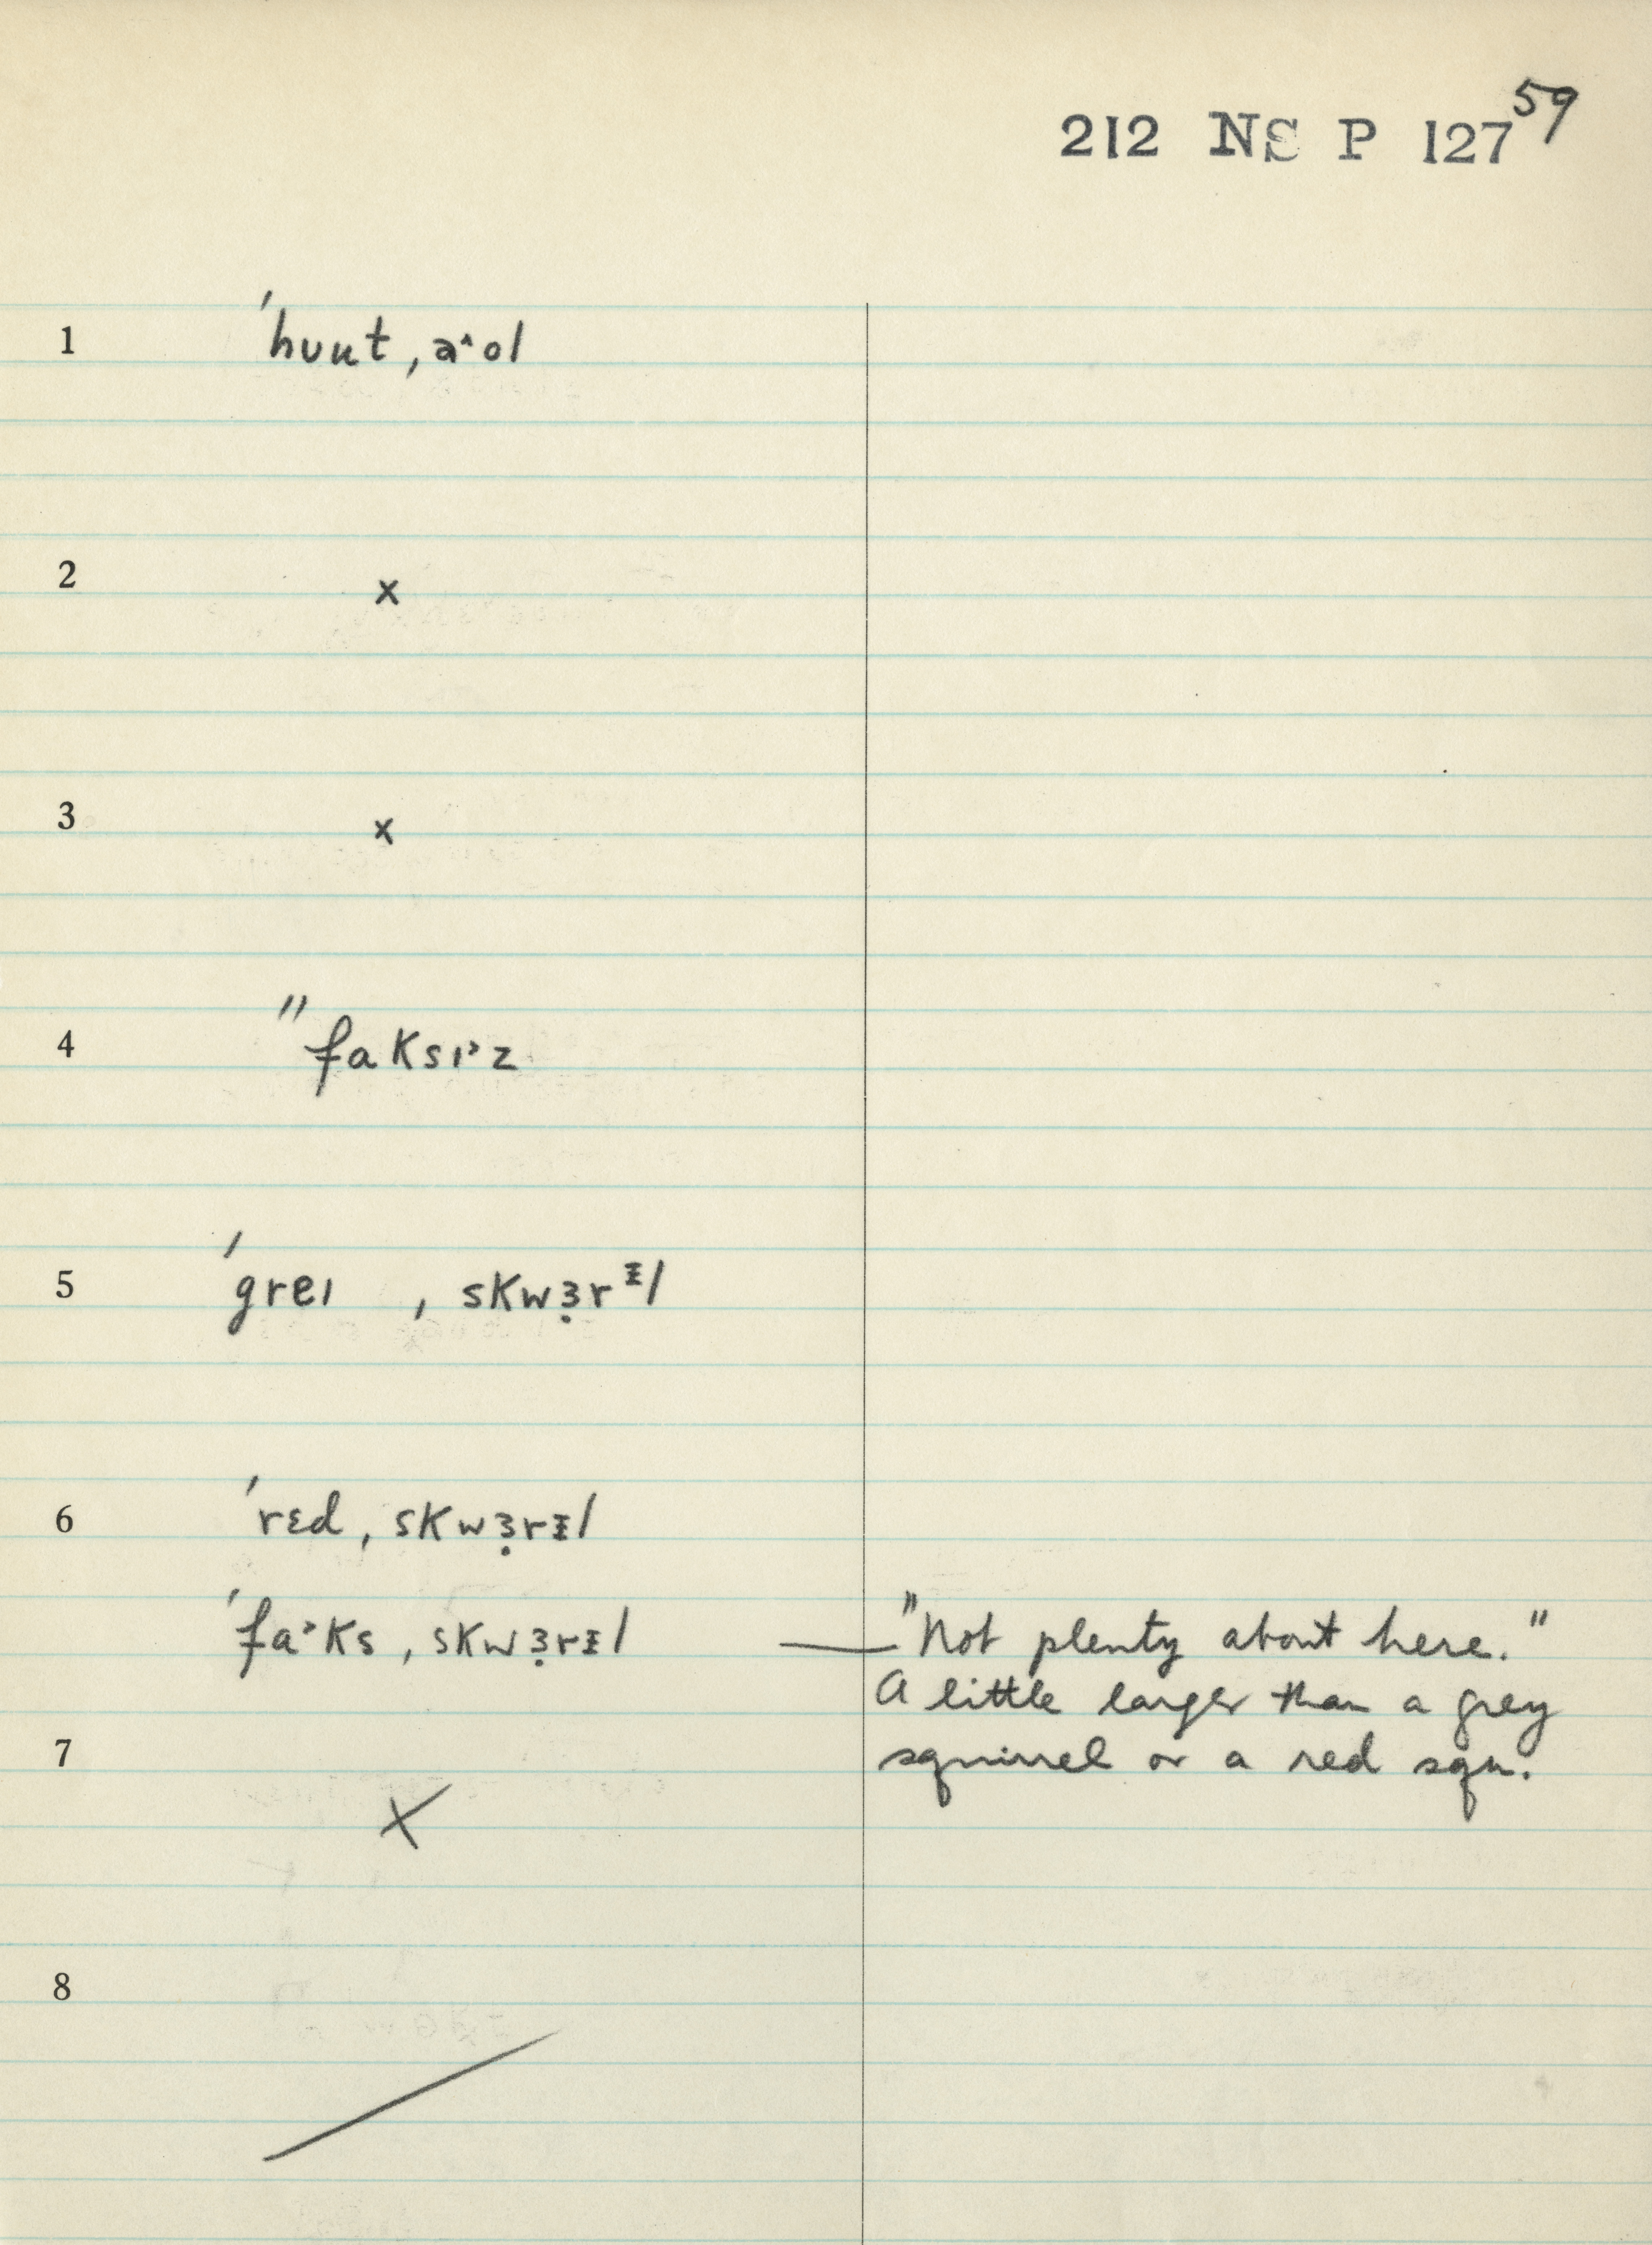 212 NS P 127 59
1 ˈhuut ˌaˆol
2 x
3 x
4 "faksɪ˃z
5 ˈgreɪ ˌskwɜ̣rᵻl
6 ˈrɛd ˌskwɜ̣rᵻl
ˈfa˃ks ˌskwɜ̣rᵻl — "Not plenty about here."
A little larger than a grey
7 squirrel or a red squ.
X
8